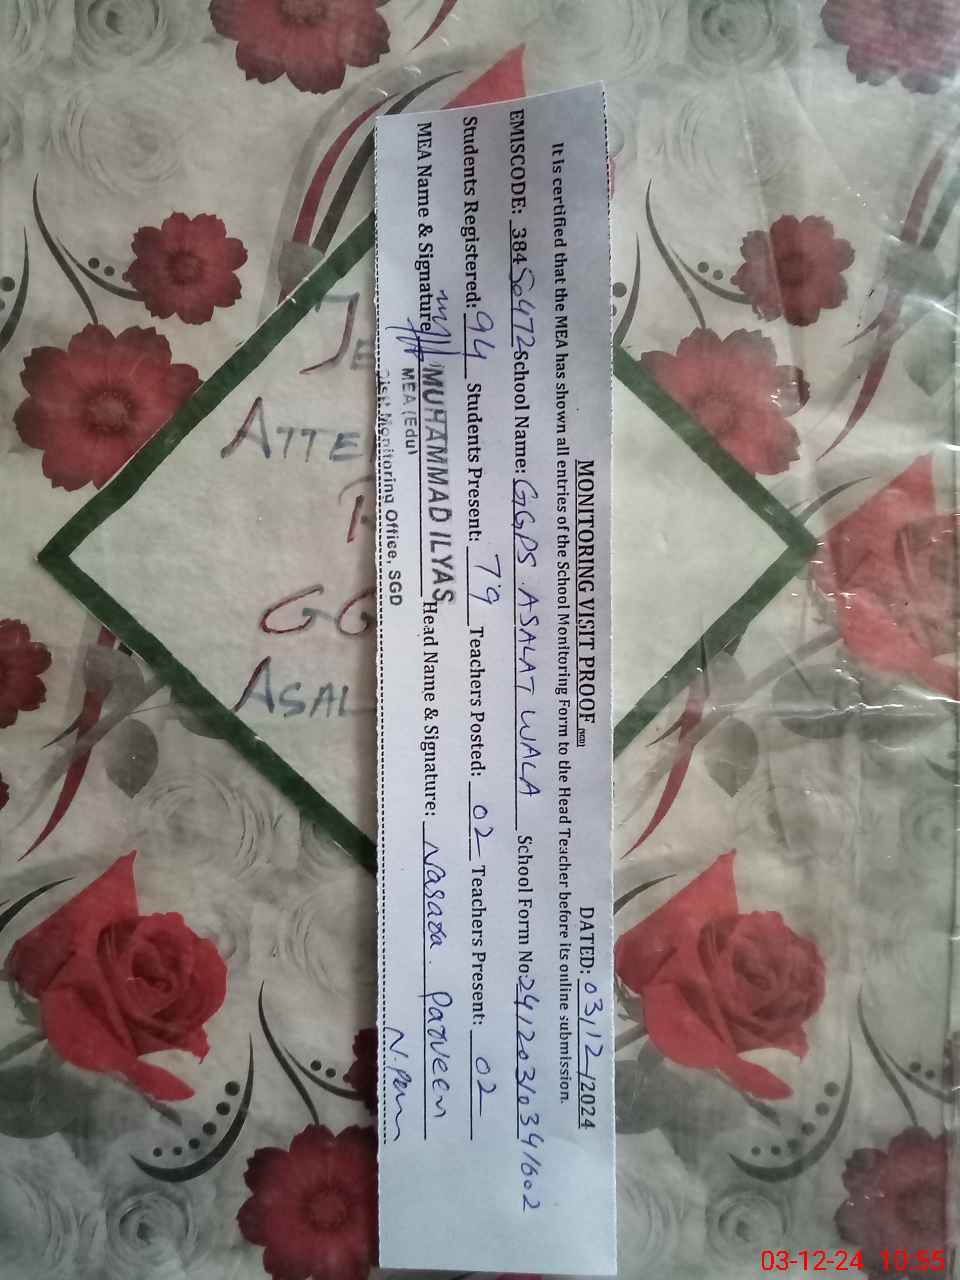 MONITORING VISIT PROOF (SED) DATED: 03/12/2024
It is certified that the MEA has shown all entries of the School Monitoring Form to the Head Teacher before its online submission.
EMISCODE: 38450472 School Name: GGPS ASALAT WALA School Form No: 24120310341602
Students Registered: 94 Students Present: 79 Teachers Posted: 02 Teachers Present: 02
MEA Name & Signature MUHAMMAD ILYAS Head Name & Signature: Nasara. Parveen
MEA (Edu)
Distt. Monitoring Office, SGD
ATTE
GG
ASAL
03-12-24 10:55